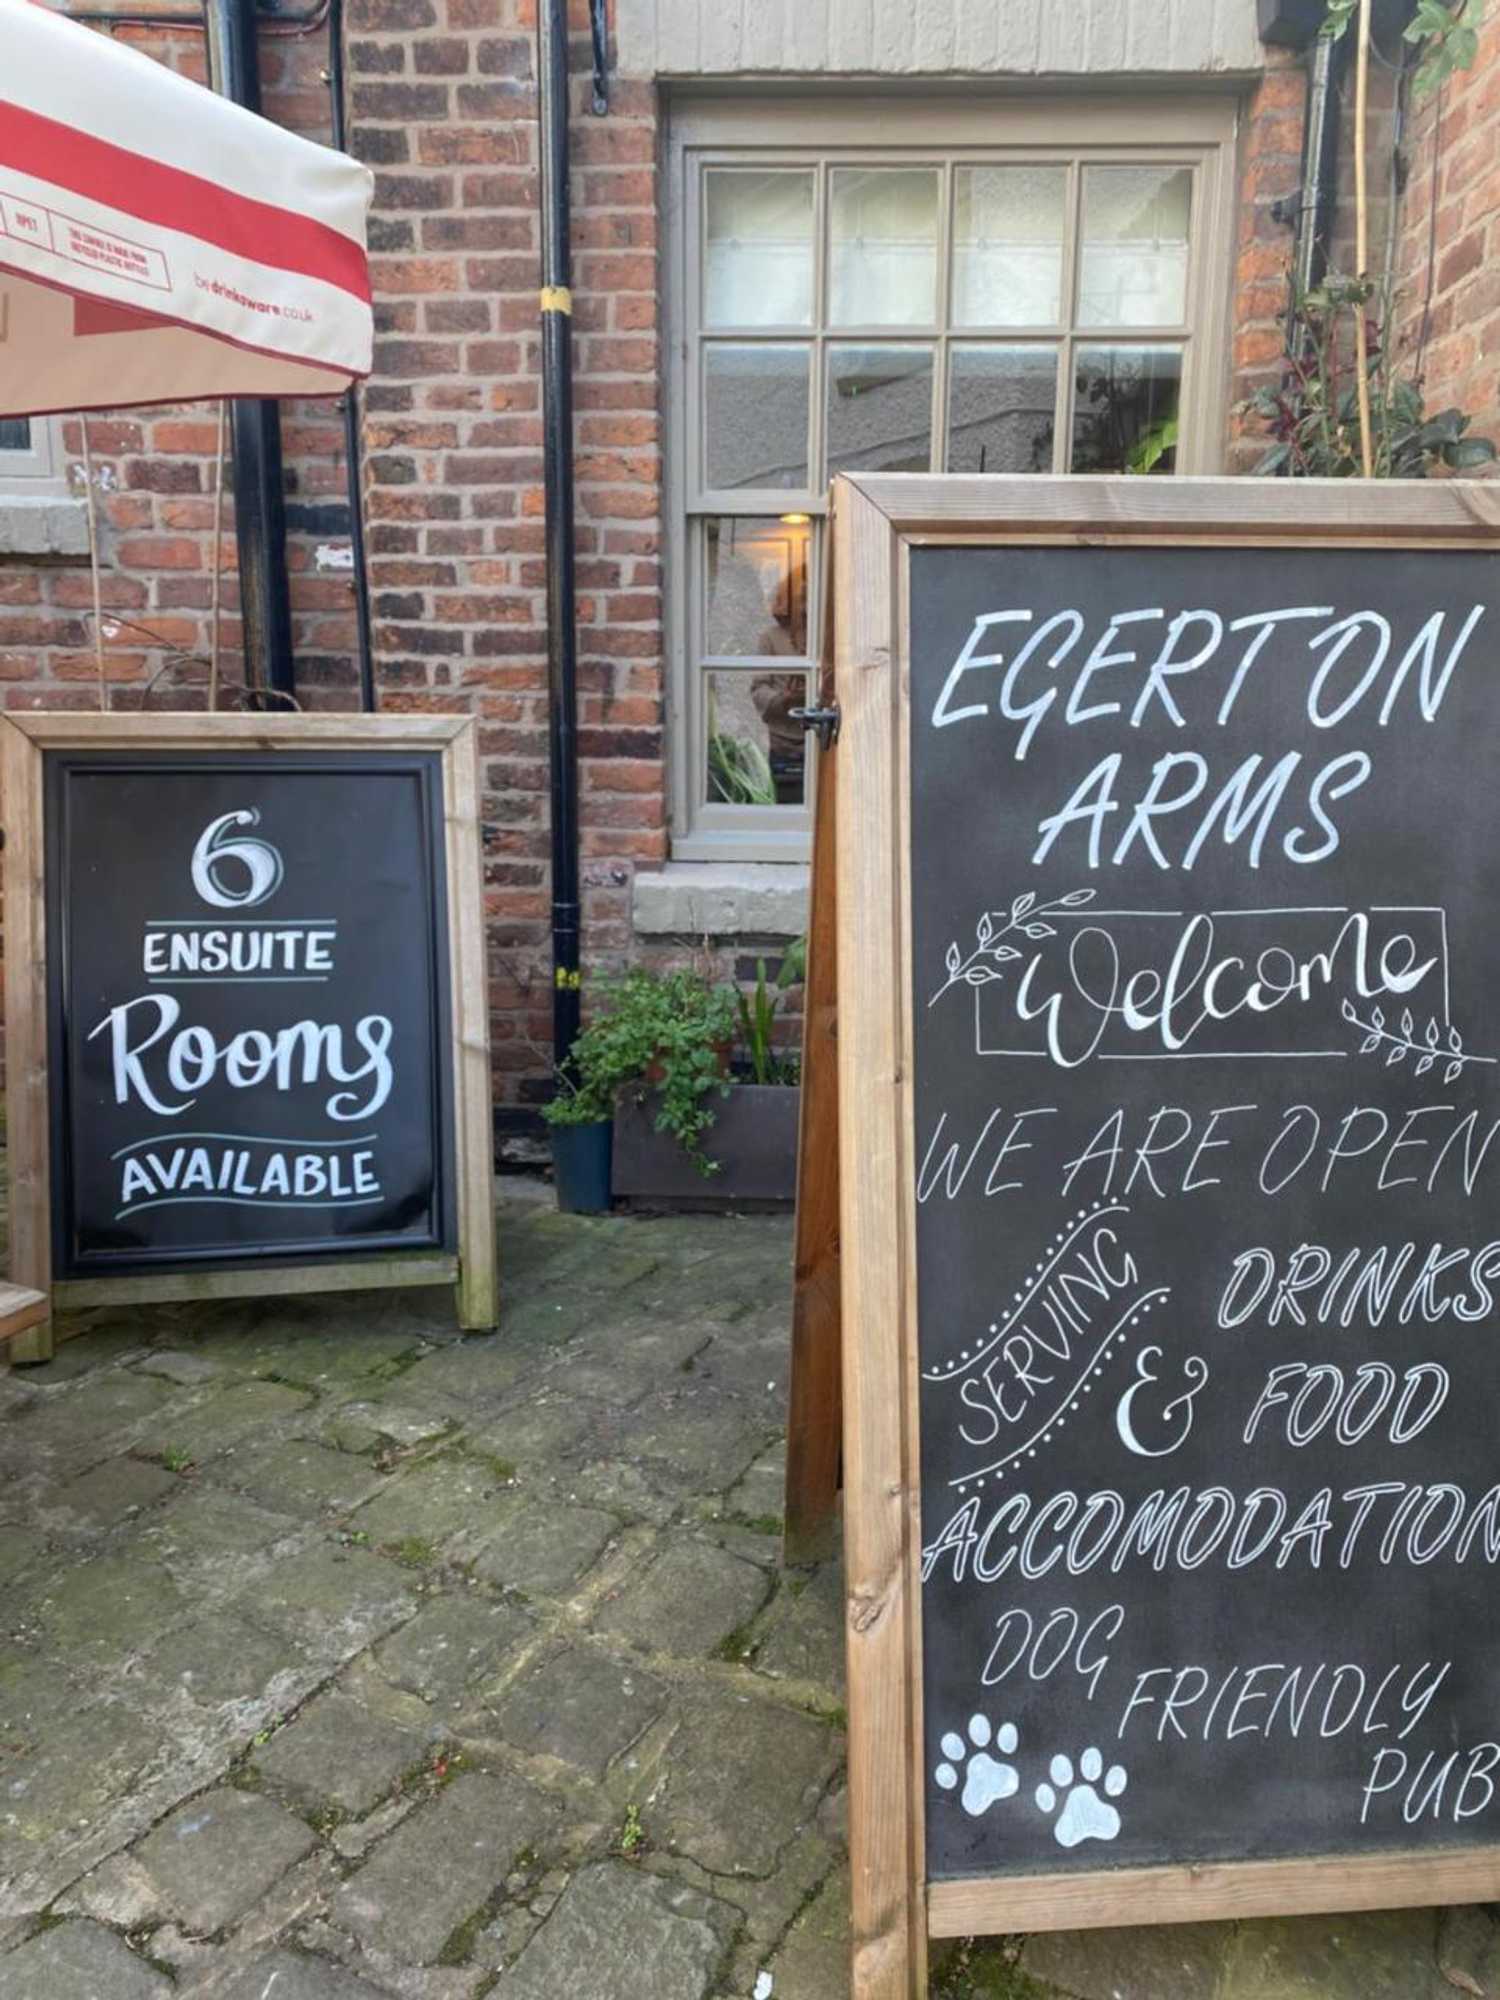 OPET
THIS CANOPY IS MADE FROM
RECYCLED PLASTIC BOTTLES
bedrinkaware.co.uk
6
ENSUITE
Rooms
AVAILABLE
EGERTON
ARMS
Welcome
WE ARE OPEN
SERVING
DRINKS
& FOOD
ACCOMODATION
DOG
FRIENDLY
PUB